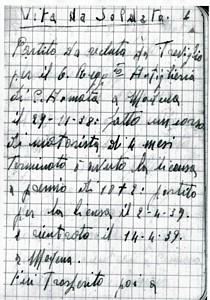 Vita da Soldato.
Partito da recluta da Treviglio
per il 6. Regg to Artiglieria
di C. Armata a Modena
il 29-14-38: fatto un corso
di motorista di 4 mesi
Terminato è avuto la licensa
a premio di 18+2: partito
per la licensa il 2-4-39.
e rientrato il 14-4-39.
a Modena.
Fui Trasferito poi a